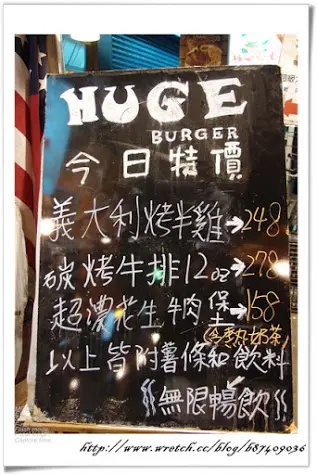 HUGE
BURGER
今日特價
義大利烤半雞→248
碳烤牛排12oz→278
超濃花生牛肉堡→158
含熱奶茶
以上皆附薯條和飲料
無限暢飲
http://www.wretch.cc/blog/b87409036